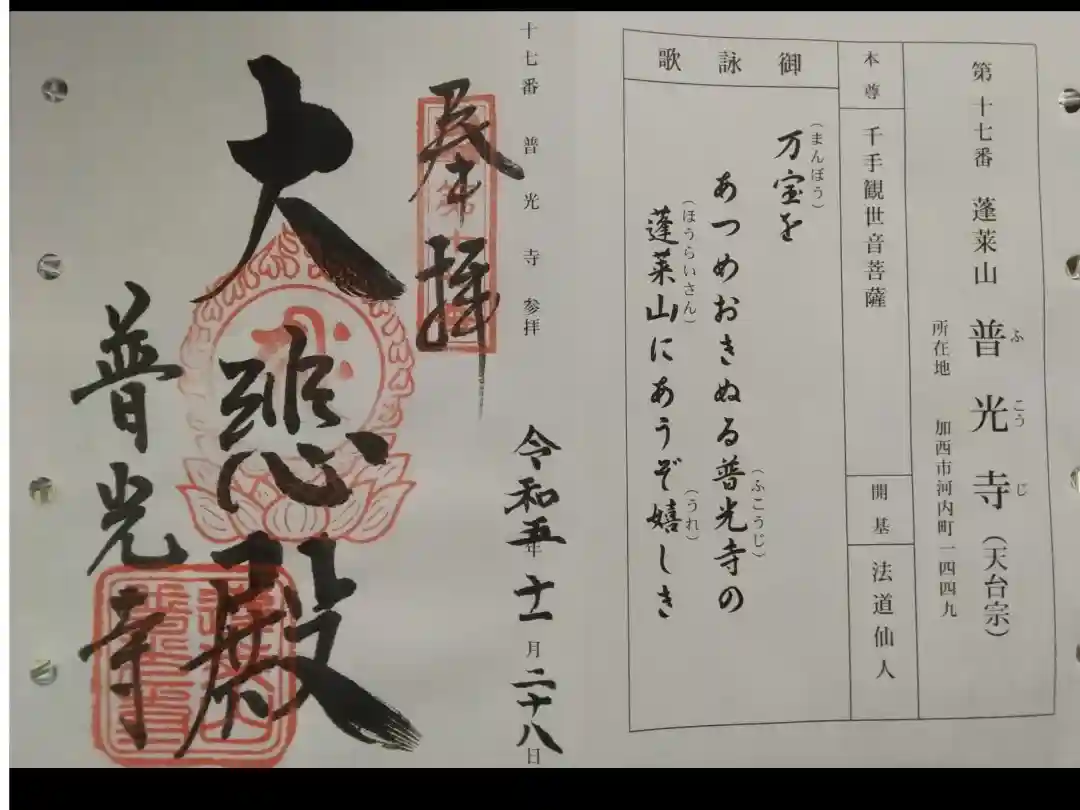 第十七番 蓬莱山 普光寺（天台宗）
ふ こう じ
所在地 加西市河内町一四四九
本尊
千手観世音菩薩
開基
法道仙人
御詠歌
万宝を
（まんぽう）
あつめおきぬる普光寺の
（ふこうじ）
蓬莱山にあうぞ嬉しき
（ほうらいさん）
（うれ）
十七番 普光寺 参拝
令和五年十一月二十八日
奉拝
第十
大悲殿
普光寺